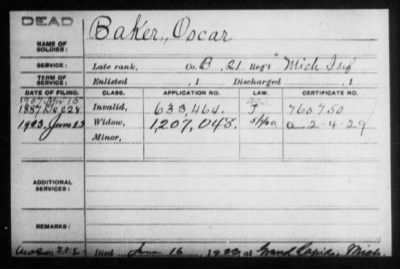 DEAD
NAME OF SOLDIER: Baker, Oscar
SERVICE: Late rank, Co. B, 21 Reg't Mich Inf
TERM OF SERVICE: Enlisted , 1 Discharged , 1
DATE OF FILING. CLASS. APPLICATION NO. LAW. CERTIFICATE NO.
1887 Dec 28 Invalid, 633,464. 760750
1923, June 23 Widow, 1207,048. a-2-4-29
Minor,
ADDITIONAL SERVICES:
REMARKS:
Died June 16, at Grand Rapids, Mich.